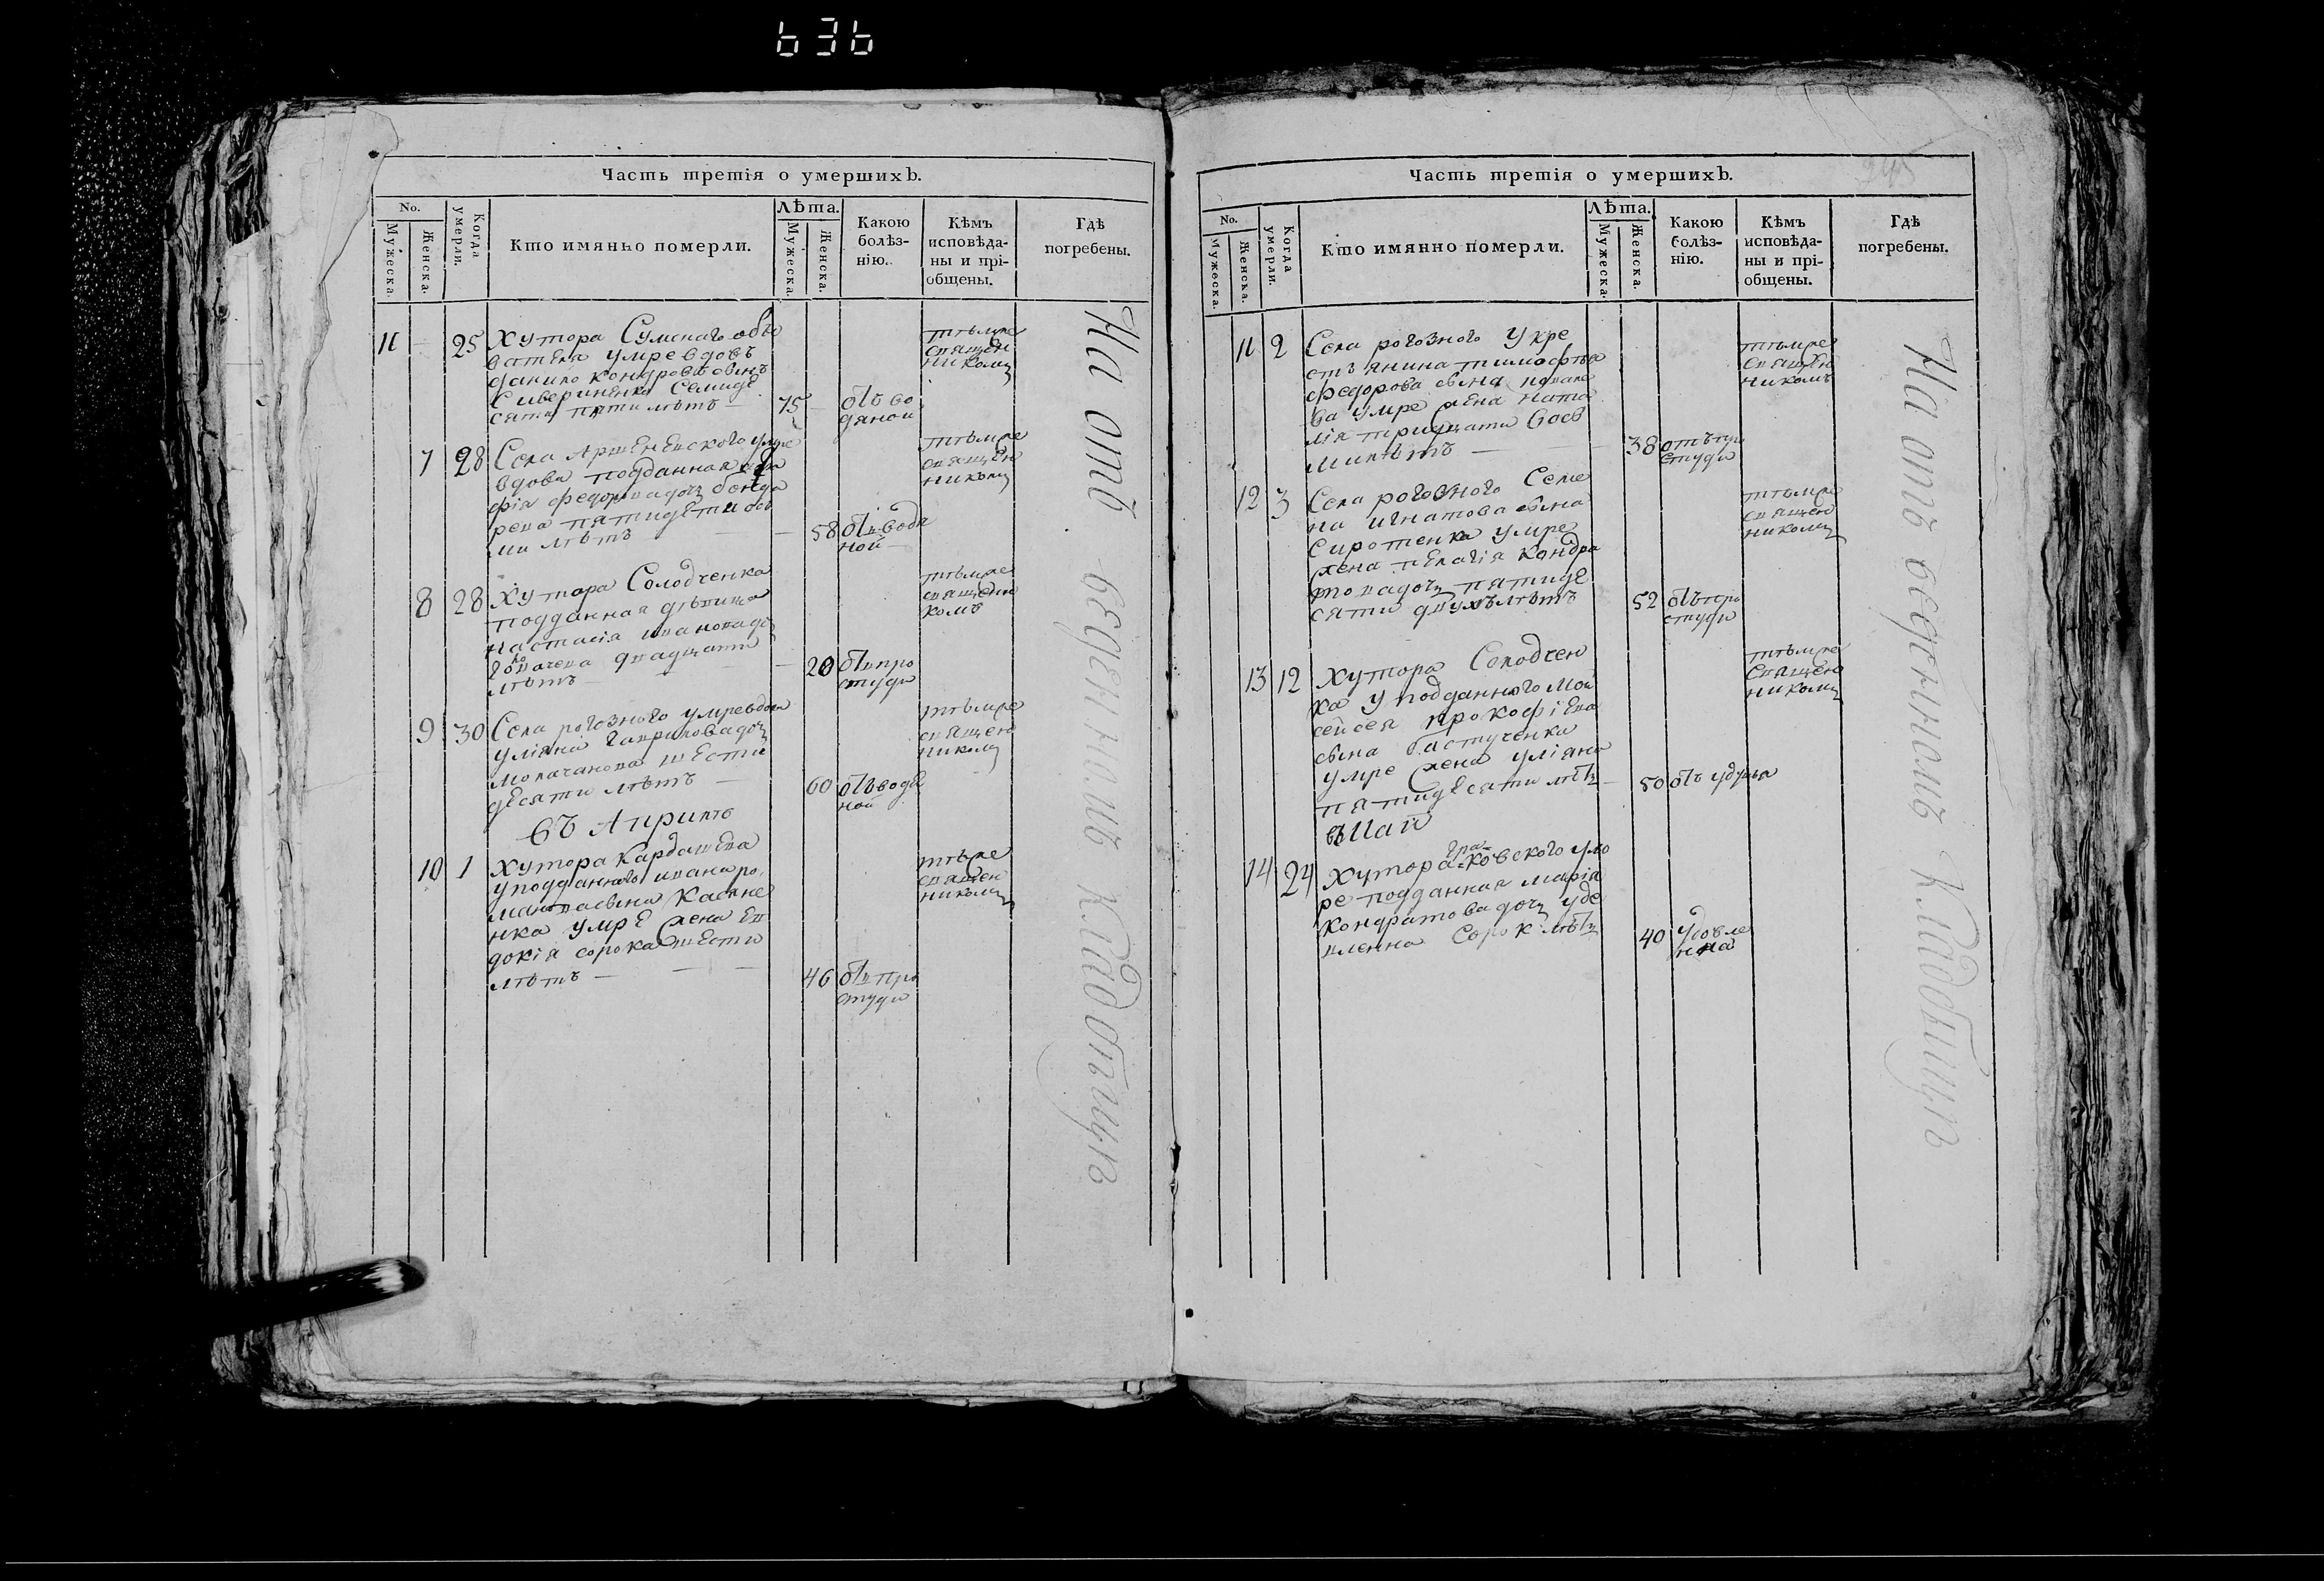 636
Часть третія о умершихъ.
No.
Мужеска.
Женска.
Когда умерли.
Кто имяньо померли.
Лѣта.
Мужеска.
Женска.
Какою
болѣз-
нію.
Кѣмъ
исповѣда-
ны и прі-
общены.
Гдѣ
погребены.
11 25 Хутора Сумскаго обы
вателя умре вдовъ
данило кондровъ сынъ
Сиверинѣнко Семиде
сяти пяти лѣтъ — 75 отъ во
дяной
тѣмже
священ
никомъ
7 28 Села
умре
вдова подданная
фія федоровадочъ бонда
рева пятидети ос
ми лѣтъ 58 отъ водя
ной
тѣмже
священ
никомъ
8 28 Хутора Солодченка
подданная дѣвица
настасія ивановадоч
двадцати
лѣтъ 20 отъ про
студи
тѣмже
священи
комъ
9 30 Села рогозного умре вдова
уліяна гавриловадочъ
молачанова шести
десяти лѣтъ — 60 отъ водя
ной
тѣмже
священ
никомъ
въ Априлѣ
10 1 Хутора Кардашева
у подданного ивана ро
сына Касяне
нка умре жена ев
докія сорока шести
лѣтъ — 46 отъ про
студи
тѣмже
священ
никомъ
На отъ веденномъ кладбищѣ
Часть третія о умершихъ.
245
No.
Мужеска.
Женска.
Когда умерли.
Кто имянно померли.
Лѣта.
Мужеска.
Женска.
Какою
болѣз-
нію.
Кѣмъ
исповѣда-
ны и прі-
общены.
Гдѣ
погребены.
11 2 Села рогозного У кре
стъянина тимофѣя
федорова сына
ва умре жена ната
лія трицати вос
ми лѣтъ — 38 отъ про
студи
тѣмже
священ
никомъ
12 3 Села рогозного Семе
на игнатова сына
Сиротенка умре
жена пелагія кондра
товадочъ пятиде
сяти двухъ лѣтъ 52 отъ про
студи
тѣмже
священ
никомъ
13 12 Хутора Солодчен
ка У подданного Мои
сейсея прокофіева
сына бастученка
умре жена уліяна
пятидесяти лѣтъ — 50 отъ удушья
тѣмже
священ
никомъ
въ Маи
14 24 Хутора гра-ковского ум
ре подданная марія
кондратовадочъ уде
вленна Сорок лѣтъ 40 удовле
нна
На отъ веденномъ кладбищѣ